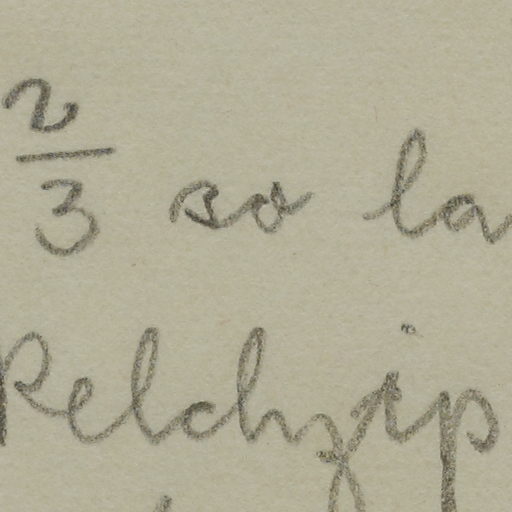 2/3 so la
Kelchzip